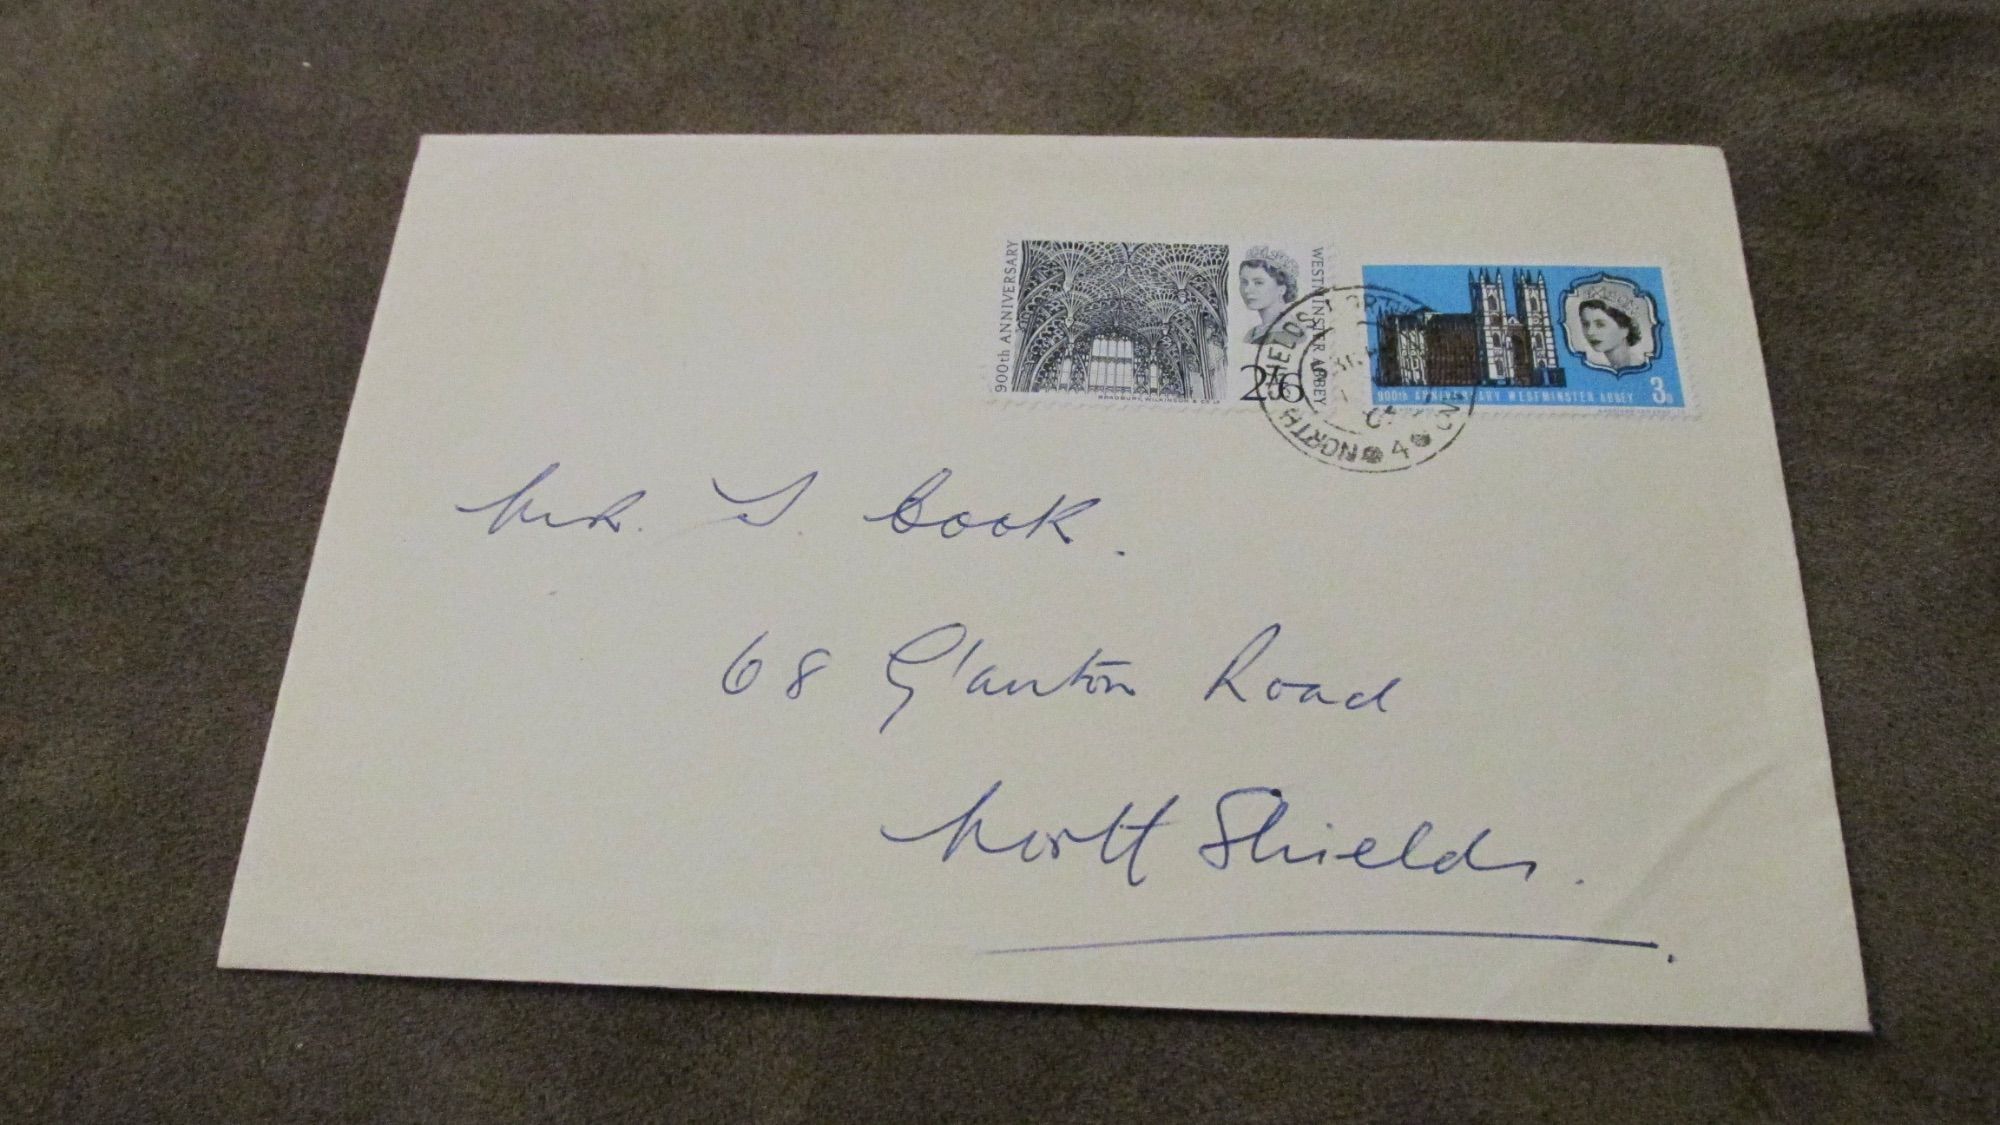 900th ANNIVERSARY
WESTMINSTER ABBEY
2/6
BRADBURY, WILKINSON & CO LD
900th ANNIVERSARY WESTMINSTER ABBEY
3D
NORTH SHIELDS
4
Mr. S. Cook.
68 Glanton Road
North Shields.